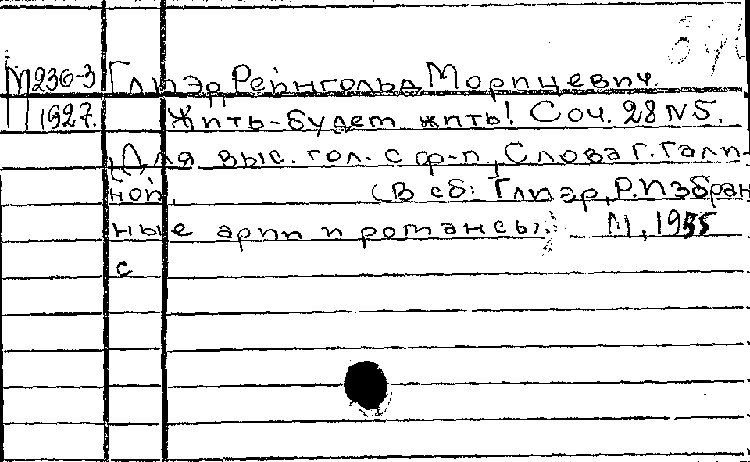 М236-3 Глиэр Рейнгольд Морицевич.
П 1927. Жить-будет жить! Соч. 28 N5.
Для выс. гол. с ф-п, Слова Г. Гали-
ной. (В сб: Глиэр, Р. Избран
ные арии и романсы. М, 1955
с